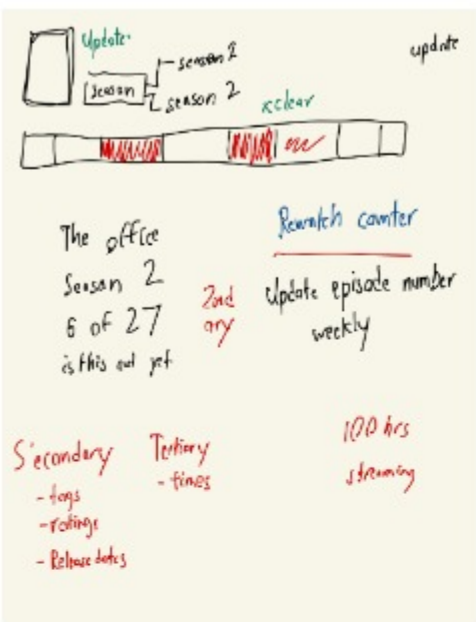 Update
update
season 1
Season
season 2
clear
The office
Season 2
6 of 27
is this out yet
Rewatch counter
2nd
ary
Update episode number
weekly
Secondary
- tags
- ratings
- Release dates
Tertiary
- times
100 hrs
streaming